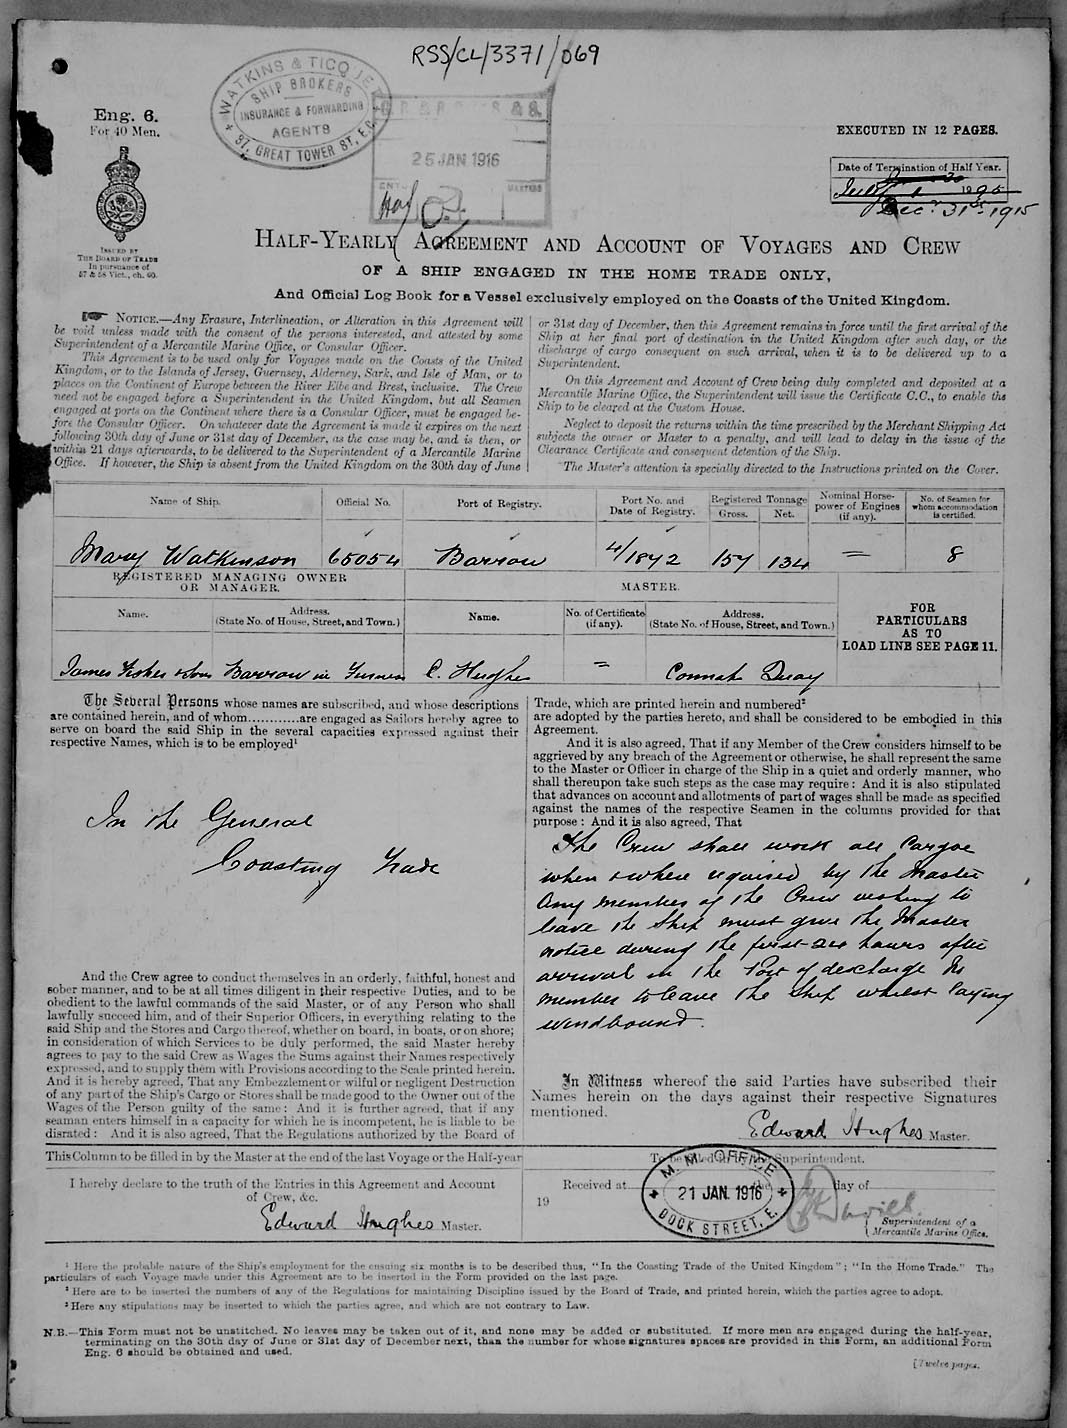 RSS/CL/3371/069
WATKINS & TICQUET
SHIP BROKERS
INSURANCE & FORWARDING
AGENTS
97, GREAT TOWER ST, E.C.
25 JAN 1916
Eng. 6.
For 40 Men.
EXECUTED IN 12 PAGES.
Date of Termination of Half Year.
Dec. 31st 1915
ISSUED BY
THE BOARD OF TRADE
In pursuance of
57 & 58 Vict., ch. 60.
HALF-YEARLY AGREEMENT AND ACCOUNT OF VOYAGES AND CREW
OF A SHIP ENGAGED IN THE HOME TRADE ONLY,
And Official Log Book for a Vessel exclusively employed on the Coasts of the United Kingdom.
NOTICE.—Any Erasure, Interlineation, or Alteration in this Agreement will
be void unless made with the consent of the persons interested, and attested by some
Superintendent of a Mercantile Marine Office, or Consular Officer.
This Agreement is to be used only for Voyages made on the Coasts of the United
Kingdom, or to the Islands of Jersey, Guernsey, Alderney, Sark, and Isle of Man, or to
places on the Continent of Europe between the River Elbe and Brest, inclusive. The Crew
need not be engaged before a Superintendent in the United Kingdom, but all Seamen
engaged at ports on the Continent where there is a Consular Officer, must be engaged be-
fore the Consular Officer. On whatever date the Agreement is made it expires on the next
following 30th day of June or 31st day of December, as the case may be, and is then, or
within 21 days afterwards, to be delivered to the Superintendent of a Mercantile Marine
Office. If however, the Ship is absent from the United Kingdom on the 30th day of June
or 31st day of December, then this Agreement remains in force until the first arrival of the
Ship at her final port of destination in the United Kingdom after such day, or the
discharge of cargo consequent on such arrival, when it is to be delivered up to a
Superintendent.
On this Agreement and Account of Crew being duly completed and deposited at a
Mercantile Marine Office, the Superintendent will issue the Certificate C.C., to enable the
Ship to be cleared at the Custom House.
Neglect to deposit the returns within the time prescribed by the Merchant Shipping Act
subjects the owner or Master to a penalty, and will lead to delay in the issue of the
Clearance Certificate and consequent detention of the Ship.
The Master's attention is specially directed to the Instructions printed on the Cover.
Name of Ship. Official No. Port of Registry. Port No. and Date of Registry. Registered Tonnage Gross. Net. Nominal Horse-power of Engines (if any). No. of Seamen for whom accommodation is certified.
Mary Watkinson 65054 Barrow 4/1872 157 134 = 8
REGISTERED MANAGING OWNER
OR MANAGER.
MASTER.
Name. Address. (State No. of House, Street, and Town.) Name. No. of Certificate (if any). Address. (State No. of House, Street, and Town.)
FOR
PARTICULARS
AS TO
LOAD LINE SEE PAGE 11.
James Fisher & Sons Barrow in Furness C. Hughes = Connah Quay
The Several Persons whose names are subscribed, and whose descriptions
are contained herein, and of whom............are engaged as Sailors hereby agree to
serve on board the said Ship in the several capacities expressed against their
respective Names, which is to be employed¹
In the General
Coasting Trade
And the Crew agree to conduct themselves in an orderly, faithful, honest and
sober manner, and to be at all times diligent in their respective Duties, and to be
obedient to the lawful commands of the said Master, or of any Person who shall
lawfully succeed him, and of their Superior Officers, in everything relating to the
said Ship and the Stores and Cargo thereof, whether on board, in boats, or on shore;
in consideration of which Services to be duly performed, the said Master hereby
agrees to pay to the said Crew as Wages the Sums against their Names respectively
expressed, and to supply them with Provisions according to the Scale printed herein.
And it is hereby agreed, That any Embezzlement or wilful or negligent Destruction
of any part of the Ship's Cargo or Stores shall be made good to the Owner out of the
Wages of the Person guilty of the same: And it is further agreed, that if any
seaman enters himself in a capacity for which he is incompetent, he is liable to be
disrated: And it is also agreed, That the Regulations authorized by the Board of
Trade, which are printed herein and numbered²
are adopted by the parties hereto, and shall be considered to be embodied in this
Agreement.
And it is also agreed, That if any Member of the Crew considers himself to be
aggrieved by any breach of the Agreement or otherwise, he shall represent the same
to the Master or Officer in charge of the Ship in a quiet and orderly manner, who
shall thereupon take such steps as the case may require: And it is also stipulated
that advances on account and allotments of part of wages shall be made as specified
against the names of the respective Seamen in the columns provided for that
purpose: And it is also agreed, That
The Crew shall work all Cargoe
when & where required by the Master
Any member of the Crew wishing to
leave the Ship must give the Master
notice during the first 24 hours after
arrival in the Port of discharge No
member to leave the Ship whilst laying
windbound.
In Witness whereof the said Parties have subscribed their
Names herein on the days against their respective Signatures
mentioned.
Edward Hughes Master.
This Column to be filled in by the Master at the end of the last Voyage or the Half-year
I hereby declare to the truth of the Entries in this Agreement and Account
of Crew, &c.
Edward Hughes Master.
To be filled in by the Superintendent.
Received at the day of
19
M. M. OFFICE
21 JAN. 1916
DOCK STREET, E.
Superintendent of a
Mercantile Marine Office.
¹ Here the probable nature of the Ship's employment for the ensuing six months is to be described thus, "In the Coasting Trade of the United Kingdom"; "In the Home Trade." The
particulars of each Voyage made under this Agreement are to be inserted in the Form provided on the last page.
² Here are to be inserted the numbers of any of the Regulations for maintaining Discipline issued by the Board of Trade, and printed herein, which the parties agree to adopt.
³ Here any stipulations may be inserted to which the parties agree, and which are not contrary to Law.
N.B.—This Form must not be unstitched. No leaves may be taken out of it, and none may be added or substituted. If more men are engaged during the half-year,
terminating on the 30th day of June or 31st day of December next, than the number for whose signatures spaces are provided in this Form, an additional Form
Eng. 6 should be obtained and used.
[Twelve pages.